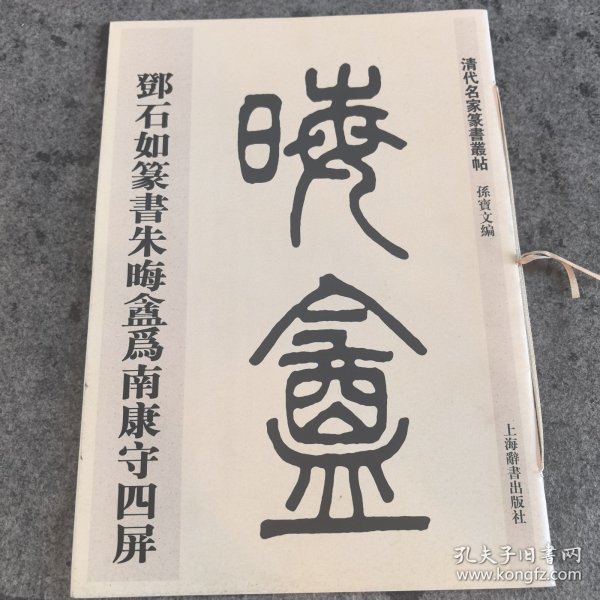 清代名家篆書叢帖
孫寶文編
上海辭書出版社
晦
盦
鄧石如篆書朱晦盦爲南康守四屏
孔夫子旧书网
www.kongfz.com